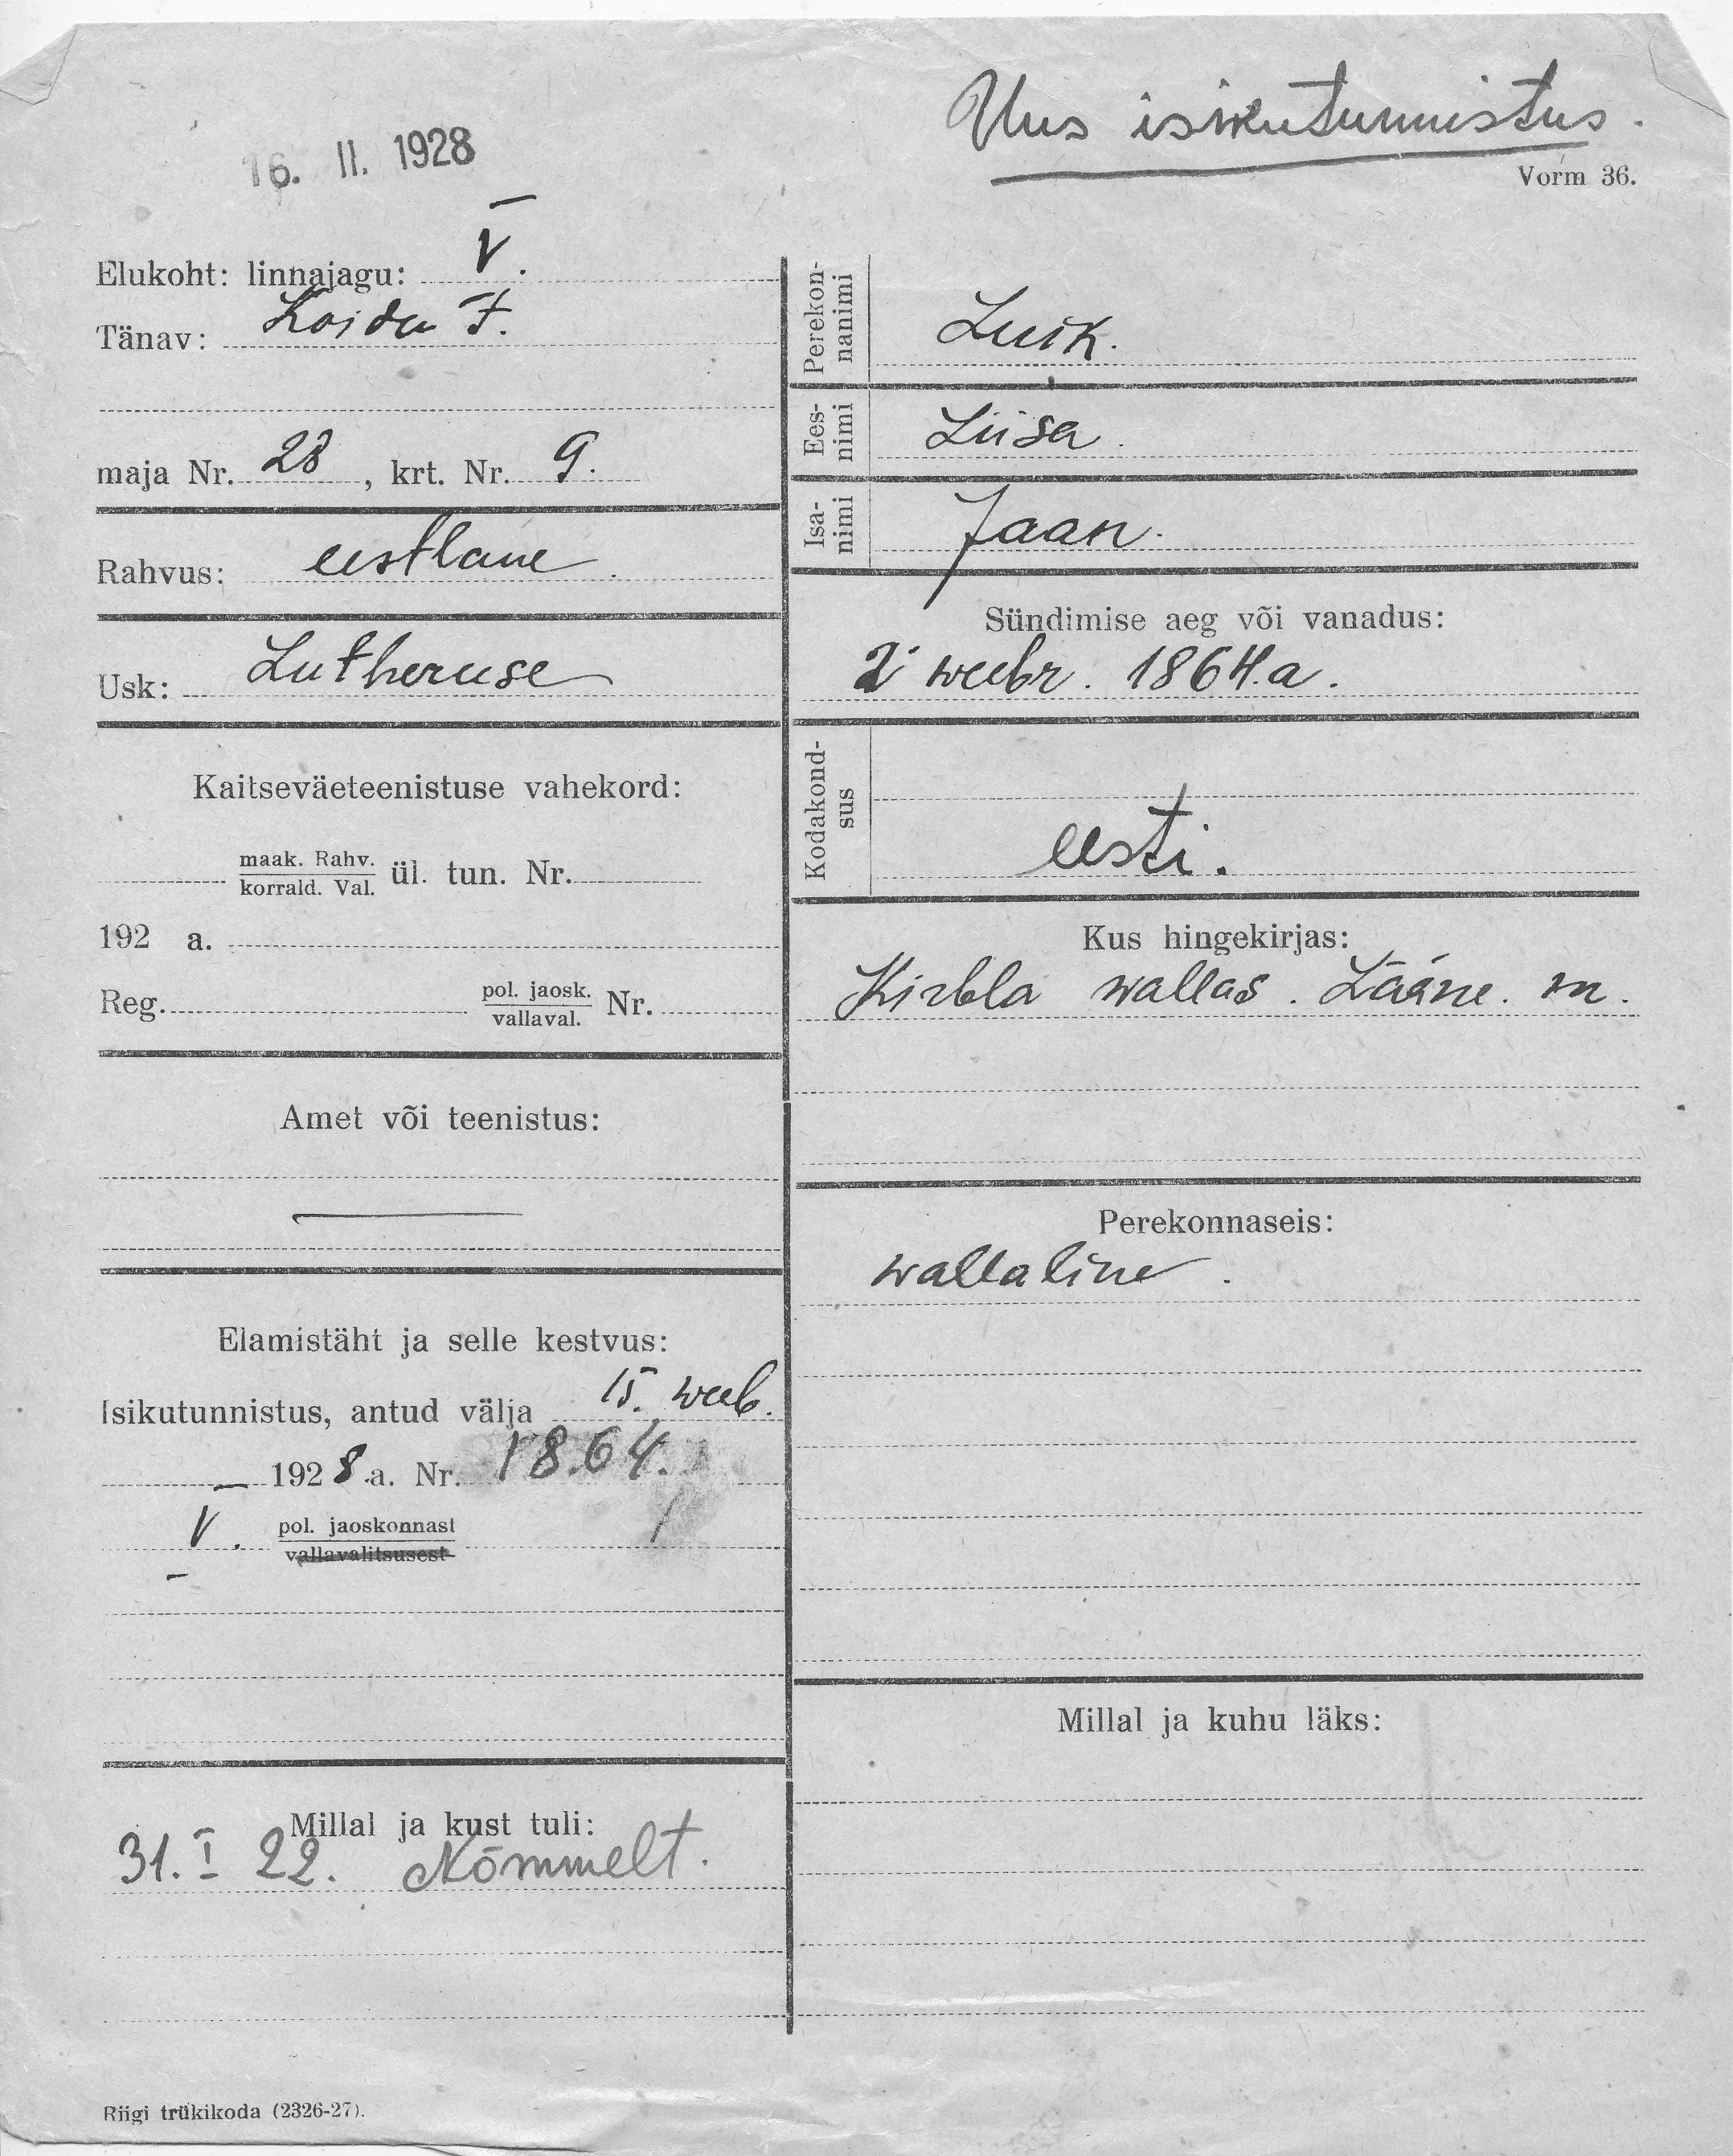 16. II. 1928
Uus isikutunnistus.
Vorm 36.
Elukoht: linnajagu: V.
Tänav: Koidu t.
maja Nr. 28, krt. Nr. 9.
Rahvus: eestlane.
Usk: Lutheruse
Kaitseväeteenistuse vahekord:
maak. Rahv.
korrald. Val.
ül. tun. Nr.
192 a.
Reg. pol. jaosk. Nr.
vallaval.
Amet või teenistus:
Elamistäht ja selle kestvus:
Isikutunnistus, antud välja 15. weeb.
1928.a. Nr. 1864.
V. pol. jaoskonnast
vallavalitsusest
Millal ja kust tuli:
31. I 22. Nõmmelt.
Riigi trükikoda (2326-27).
Perekon-
nanimi
Luik.
Ees-
nimi
Liisa.
Isa-
nimi
Jaan.
Sündimise aeg või vanadus:
2 weebr. 1864.a.
Kodakond-
sus
eesti.
Kus hingekirjas:
Kirbla wallas. Lääne. m.
Perekonnaseis:
wallaline.
Millal ja kuhu läks: